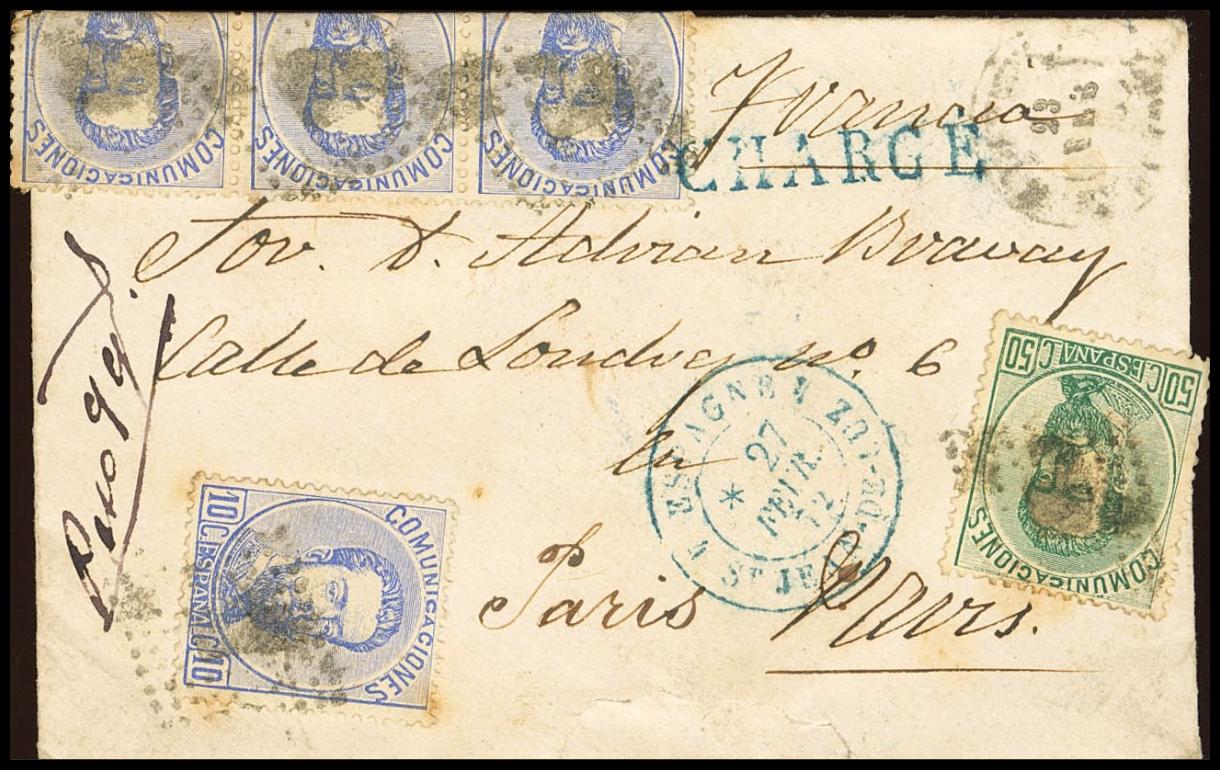 COMUNICACIONES COMUNICACIONES COMUNICACIONES
Francia
CHARGE
28
Sor. D. Adrian Bravay
Calle de Londres nº. 6
50 C. ESPANA C. 50
COMUNICACIONES
ESPAGNE ST JEAN-DE-LUZ
27
FEVR.
72
en
10 C. ESPANA C. 10
COMUNICACIONES
Paris Paris.